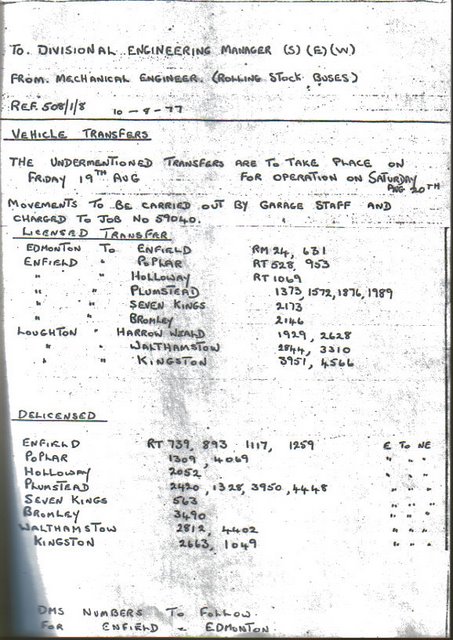 TO. DIVISIONAL ENGINEERING MANAGER (S) (E) (W)
FROM. MECHANICAL ENGINEER. (ROLLING STOCK BUSES)
REF. 508/1/8 10-8-77
VEHICLE TRANSFERS
THE UNDERMENTIONED TRANSFERS ARE TO TAKE PLACE ON
FRIDAY 19TH AUG FOR OPERATION ON SATURDAY
AUG 20TH
MOVEMENTS TO BE CARRIED OUT BY GARAGE STAFF AND
CHARGED TO JOB NO 59040.
LICENSED TRANSFER
EDMONTON TO ENFIELD RM 24, 631
ENFIELD " POPLAR RT 528, 953
" " HOLLOWAY RT 1069
" " PLUMSTEAD 1373, 1572, 1876, 1989
" " SEVEN KINGS 2173
" " BROMLEY 2146
LOUGHTON " HARROW WEALD 1929, 2628
" " WALTHAMSTOW 2844, 3310
" " KINGSTON 3951, 4566
DELICENSED
ENFIELD RT 739, 893 1117, 1259 E TO NE
POPLAR 1309, 4069 " " "
HOLLOWAY 2052 " " "
PLUMSTEAD 2420, 1328, 3950, 4448 " " "
SEVEN KINGS 563 " " "
BROMLEY 3490 " " "
WALTHAMSTOW 2812, 4402 " " "
KINGSTON 2663, 1049 " " "
DMS NUMBERS TO FOLLOW
FOR ENFIELD & EDMONTON